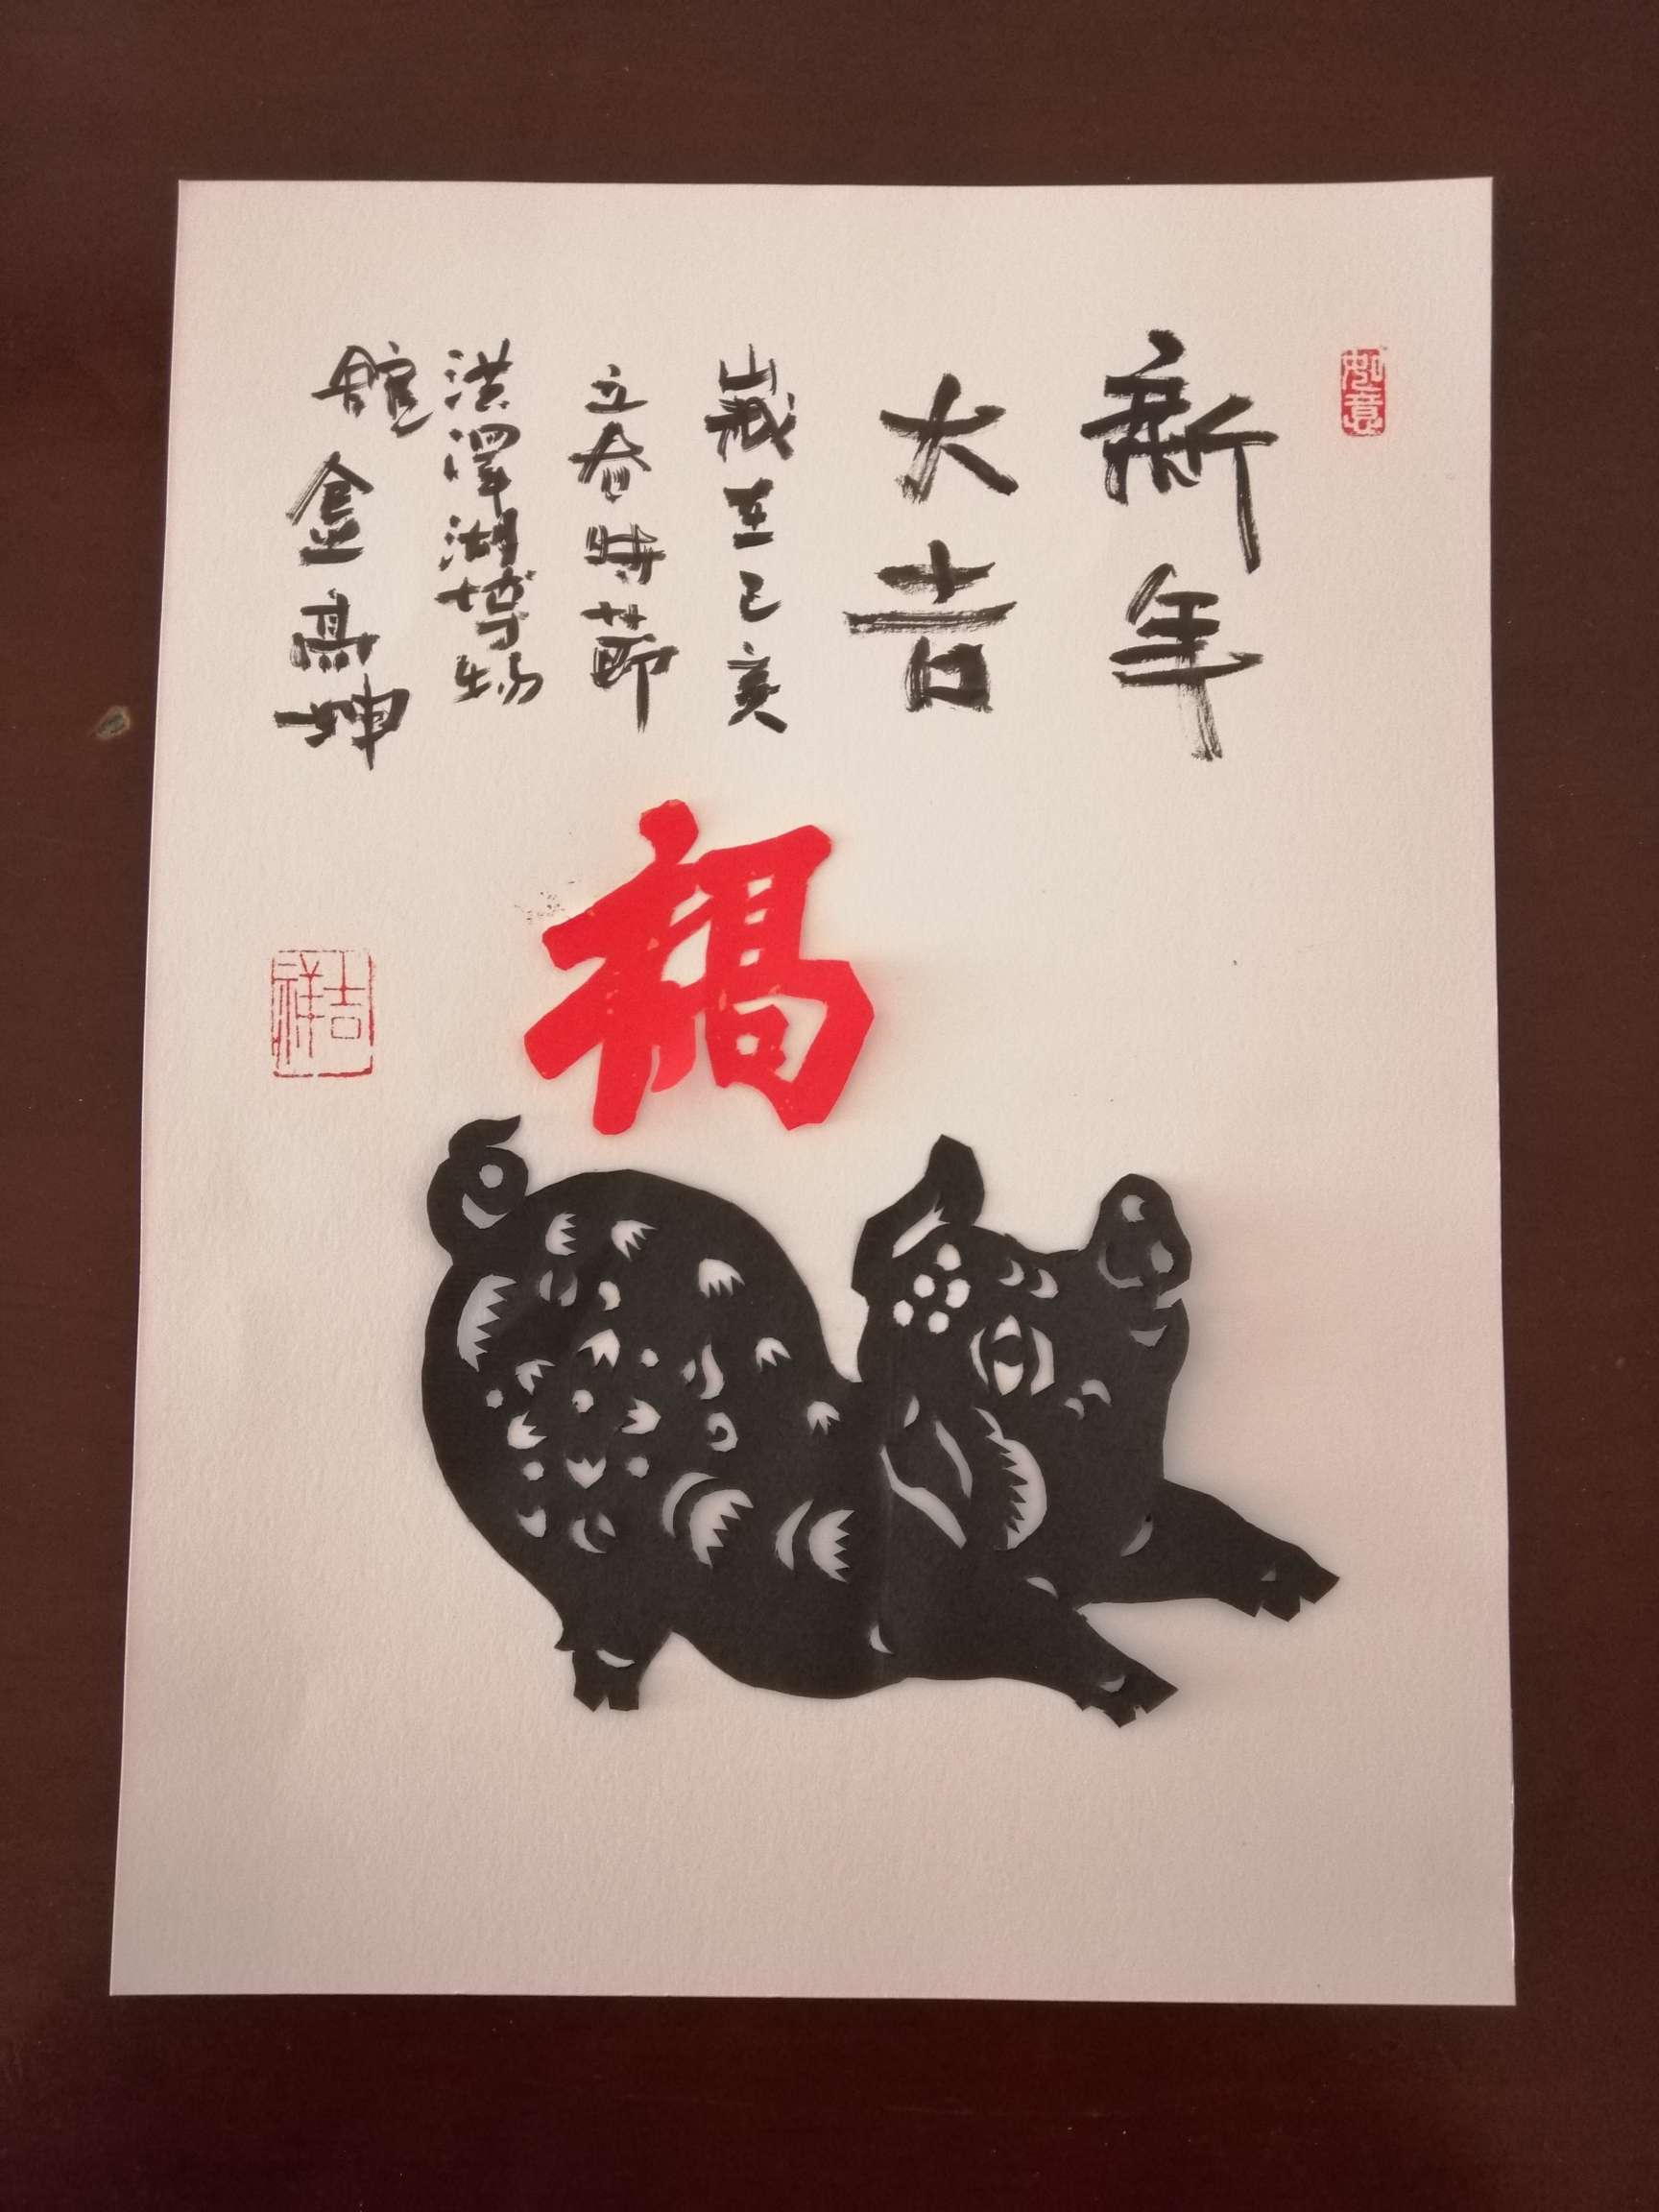 如意
新年
大吉
歲在己亥
立春時節
洪澤湖博物
館 金高坤
福
吉祥